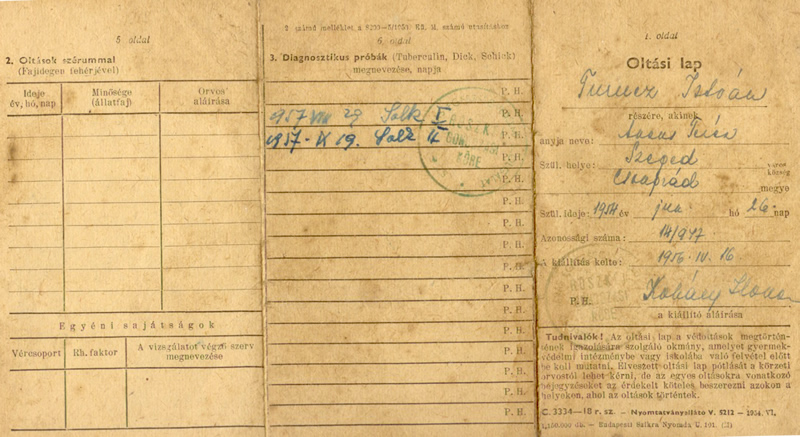 5 oldal
2. Oltások szérummal
(Fajidegen fehérjével)
Ideje
év, hó, nap
Minősége
(állatfaj)
Orvos
aláírása
Egyéni sajátságok
Vércsoport
Rh. faktor
A vizsgálatot végző szerv
megnevezése
2 számú melléklet a 8200—5/1951 Eü. M. számú utasításhoz
6. oldal
3. Diagnosztikus próbák (Tuberculin, Dick, Schick)
megnevezése, napja
P. H.
1957 VIII 29 Salk I P. H.
1957 - IX 19. Salk II P. H.
P. H.
P. H.
P. H.
P. H.
P. H.
P. H.
P. H.
P. H.
P. H.
P. H.
P. H.
P. H.
P. H.
1. oldal
Oltási lap
István
részére, akinek
anyja neve:
Szül. helye: Szeged város
község
Csongrád megye
Szül. ideje: 1954 év hó 26 nap
Azonossági száma: 14/947
A kiállítás kelte: 1956. IV. 16
P. H.
a kiállító aláírása
Tudnivalók! Az oltási lap a védőoltások megtörtén-
tének igazolására szolgáló okmány, amelyet gyermek-
védelmi intézménybe vagy iskolába való felvétel előtt
be kell mutatni. Elveszett oltási lap pótlását a körzeti
orvostól lehet kérni, de az egyes oltásokra vonatkozó
bejegyzéseket az érdekelt köteles beszerezni azokon a
helyeken, ahol az oltások történtek.
C. 3334—18 r. sz. — Nyomtatványellátó V. 5212 — 1954. VI.
1,100.000 db. — Budapesti Szikra Nyomda U. 101.